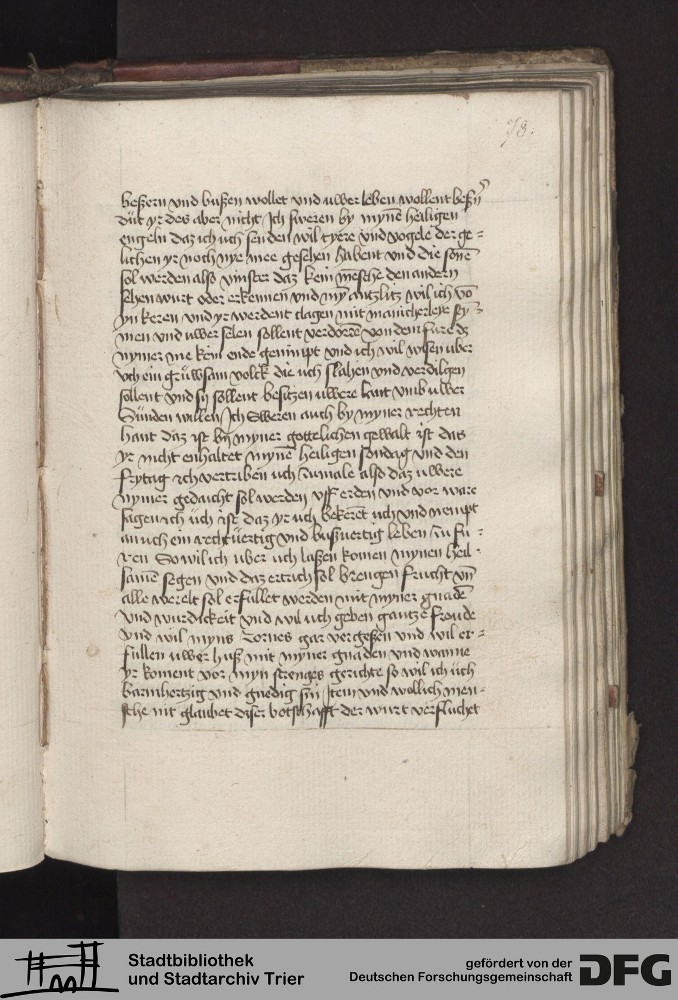 78.
beßern vnd bußen wollet vnd uwer leben wollent beßrn
Dut yr des aber nicht Ich sweren by myne heiligen
engeln daz ich uch senden wil tyere vnd vogele der ge=
lichen yr noch nye mee gesehen habent vnd die sone
sol werden also vinster daz kein mesche den andern
sehen wurt oder erkennen vnd myn antzlitz wil ich vo
yn keren vnd yr werdent clagen mit manicherleye sty=
men vnd uwer selen sollent verdorre von dem fure dz
nymer me kein ende genimpt vnd ich wil wisen uber
vch ein gruwsam volck die uch slahen vnd verdilgen
sollent vnd sy sollent besitzen uwere lant vmb uwer
Sunden willen Ich Sweren auch by myner rechten
hant daz ist by myner gottelichen gewalt ist das
yr nicht enhaltet myne heiligen sondag vnd den
frytag ich vertriben uch zumale also daz uwere
nymer gedacht sol werden vff erden vnd vor ware
sagen ich uch ist daz yr uch bekeret uch vnd nempt
an uch ein rechtuertig vnd bußuertig leben zu fu=
ren So wil ich uber uch laßen komen mynen heil=
same segen vnd daz ertrich sol brengen frucht vn
alle werelt sol erfullet werden mit myner gnade
vnd wurdickeit vnd wil uch geben gantze freude
vnd wil myns Zornes gar vergeßen vnd wil er=
fullen uwer huß mit myner gnaden vnd wanne
yr koment vor myn strenges gerichte so wil ich uch
barmhertzig vnd gnedig sin Item vnd wollich men=
sche nit glaubet diser botschafft der wurt verfluchet
Stadtbibliothek
und Stadtarchiv Trier
gefördert von der
Deutschen Forschungsgemeinschaft
DFG